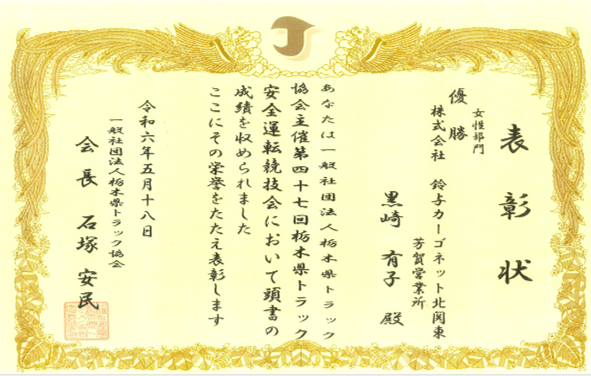 表彰状
女性部門
優勝
株式会社 鈴与カーゴネット北関東
芳賀営業所
黒崎 有子 殿
あなたは一般社団法人栃木県トラック
協会主催第四十七回栃木県トラック
安全運転競技会において頭書の
成績を収められました
ここにその栄誉をたたえ表彰します
令和六年五月十八日
一般社団法人栃木県トラック協会
会長 石塚 安民